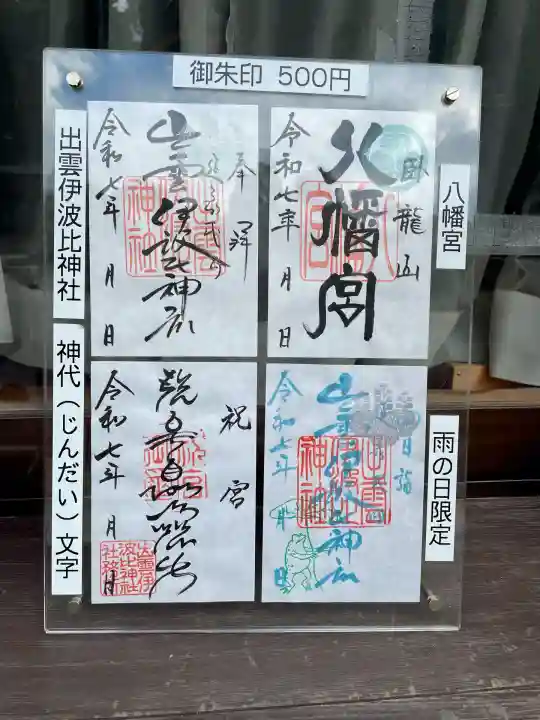 御朱印 500円
八幡宮
臥龍山
八幡宮
令和七年 月 日
出雲伊波比神社
奉拝
出雲伊波比神社
令和七年 月 日
雨の日限定
出雲伊波比神社
令和七年 月 日
神代（じんだい）文字
祝宮
令和七年 月 日
出雲伊
波比神社
社務